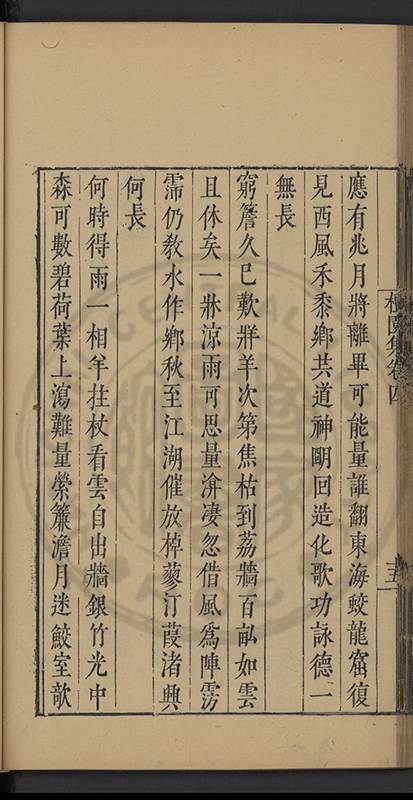 應有兆月將離畢可能量誰翻東海蛟龍窟復
見西風禾黍鄉共道神明回造化歌功詠德一
無長
窮簷久已歎牂羊次第焦枯到荔牆百畝如雲
且休矣一牀涼雨可思量渰凄忽借風為陣雱
霈仍教水作鄉秋至江湖催放棹蓼汀葭渚興
何長
何時得雨一相羊拄杖看雲自出牆銀竹光中
森可數碧荷葉上瀉難量縈簾澹月迷鮫室欹
集卷四
五